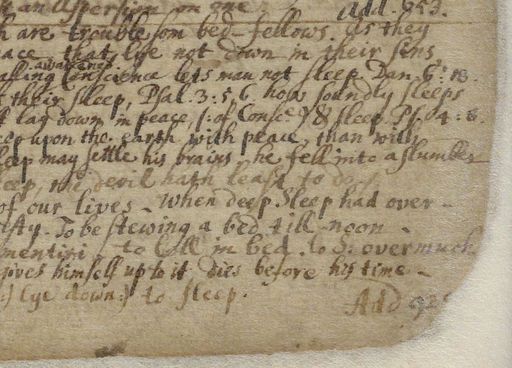 an Aspersion on one
Add. 953.
are troublesom bed-fellows. As they
that lye not down in their sins
awakened
Conscience lets man not sleep. Dan. 6: 18.
their sleep, Psal. 3:5 6 how soundly sleeps
lay down in peace of Consc & sleep. Ps. 4: 8.
upon the earth with peace, than with
sleep may settle his brains, he fell into a slumber
devil hath least to do
of our lives - When deep Sleep had over-
To be stewing a bed till noon -
to loll in bed. to S: overmuch
gives himself up to it dies before his time -
lye down:) to sleep.
Add